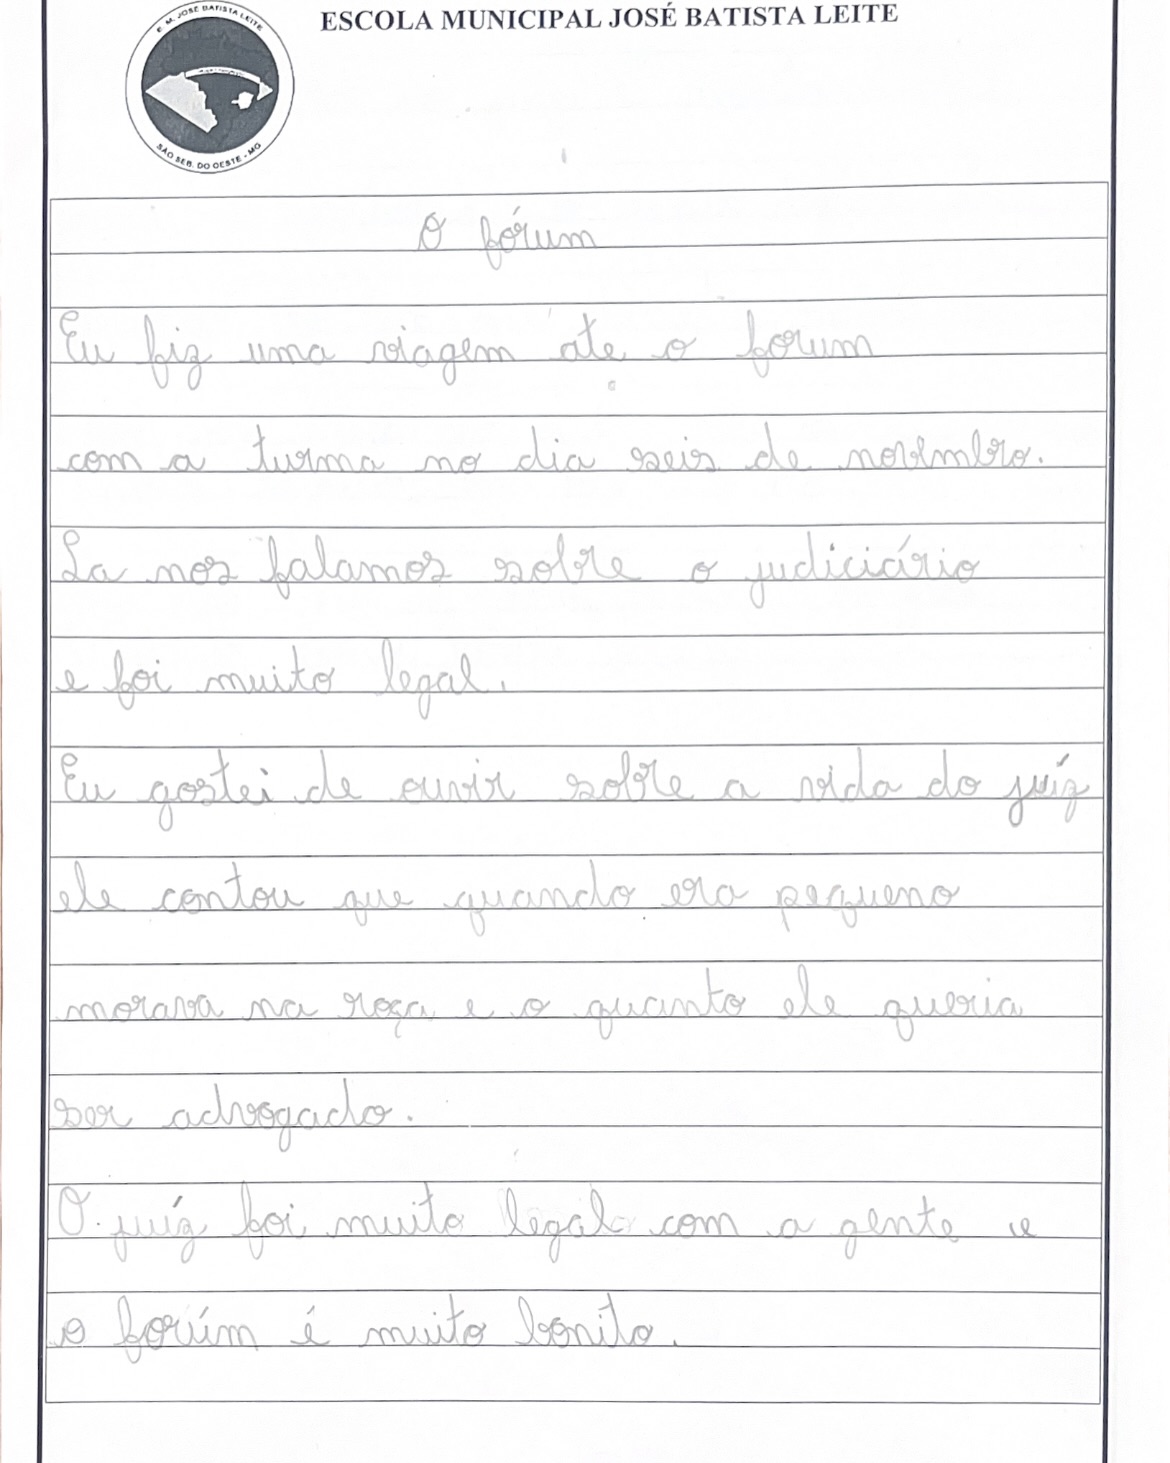 E. M. JOSÉ BATISTA LEITE
SÃO SEB. DO OESTE - MG
ESCOLA MUNICIPAL JOSÉ BATISTA LEITE
O fórum
Eu fiz uma viagem ate o forum
com a turma no dia seis de novembro.
La nos falamos sobre o judiciário
e foi muito legal.
Eu gostei de ouvir sobre a vida do juíz
ele contou que quando era pequeno
morava na roça e o quanto ele queria
ser advogado.
O juíz foi muito legal com a gente e
o forúm é muito bonito.